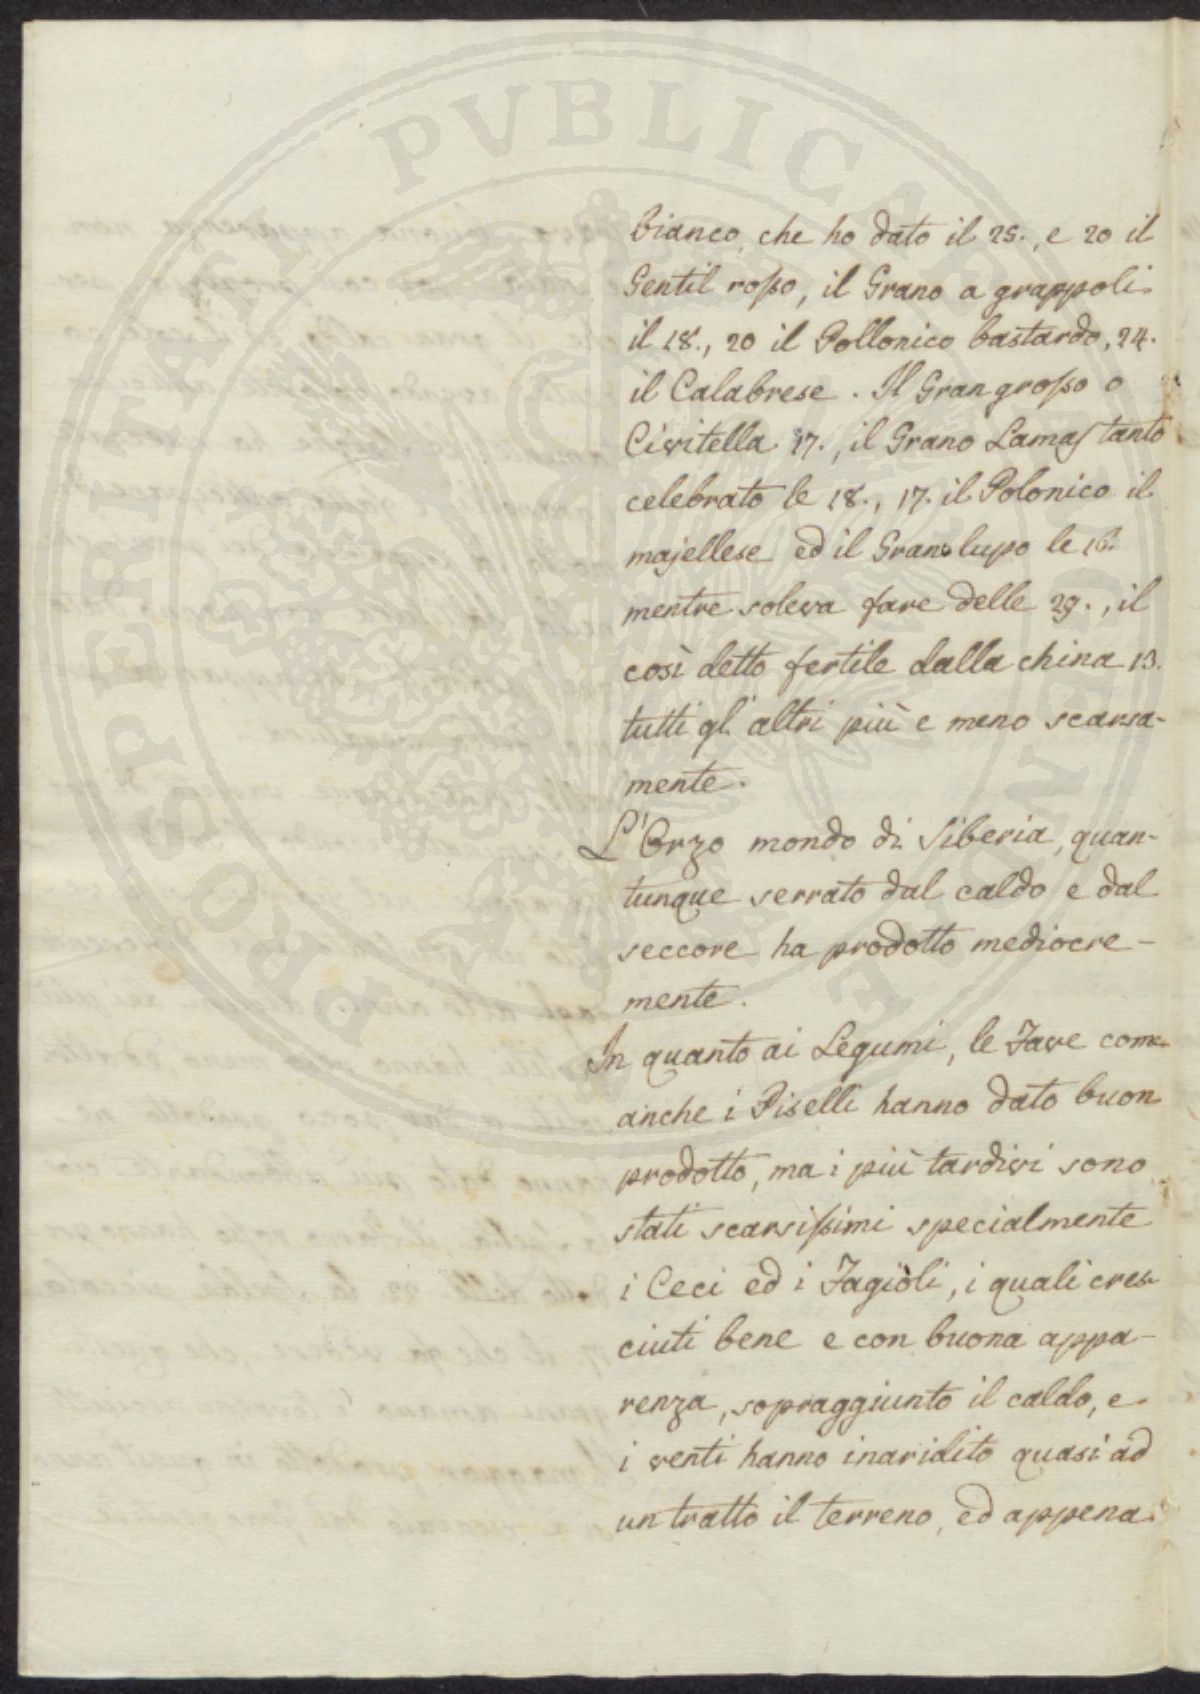 PROSPERITATI PVBLICAE AVGENDAE
bianco, che ho dato il 25., e 20 il
Gentil rosso, il Grano a grappoli
il 18., 20 il Pollonico bastardo, 24.
il Calabrese. Il Gran grosso o
Civitella 17., il Grano Lamas tanto
celebrato le 18., 17. il Polonico il
majellese ed il Grano lupo le 16.
mentre soleva fare delle 29., il
così detto fertile dalla china 13.
tutti gl'altri più e meno scarsa-
mente.
L'Orzo mondo di Siberia, quan-
tunque serrato dal caldo e dal
seccore ha prodotto mediocre-
mente.
In quanto ai Legumi, le Fave come
anche i Piselli hanno dato buon
prodotto, ma i più tardivi sono
stati scarsissimi specialmente
i Ceci ed i Fagiòli, i quali cres-
ciuti bene e con buona appa-
renza, sopraggiunto il caldo, e
i venti hanno inaridito quasi ad
un tratto il terreno, ed appena